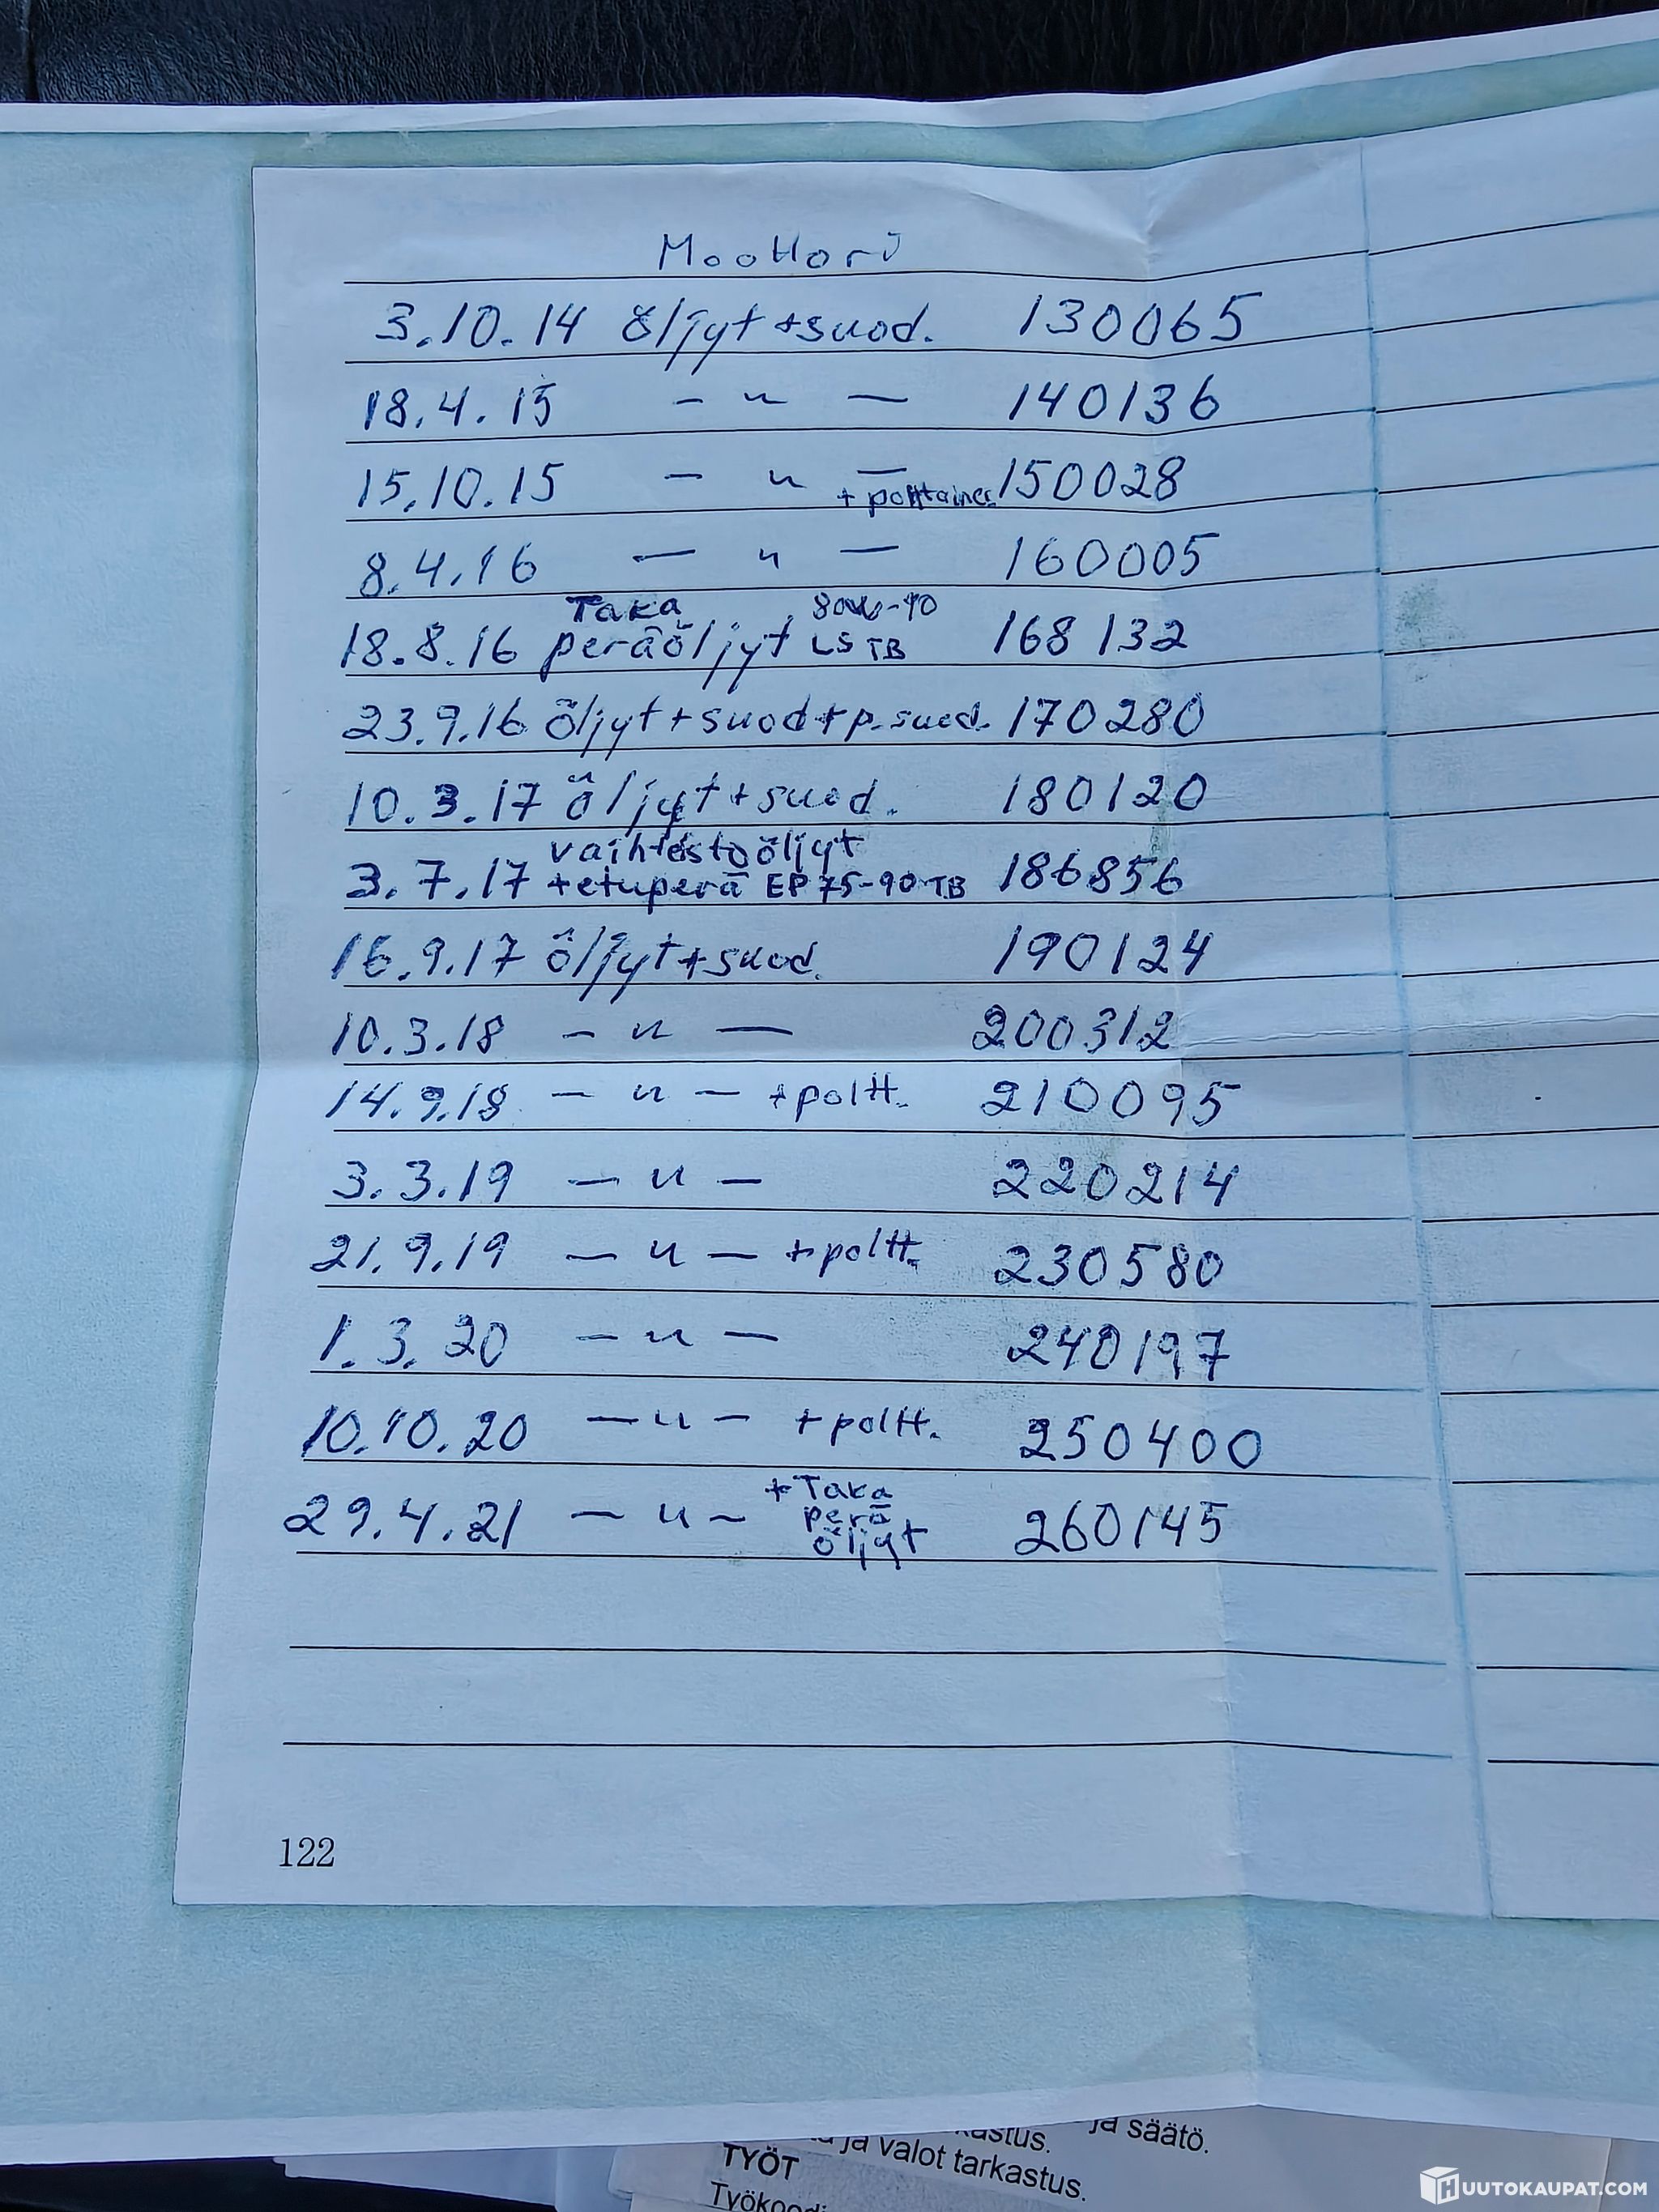 Moottori
3.10.14 öljyt+suod. 130065
18.4.15 – " – 140136
15.10.15 – " – 150028
8.4.16 – " – 160005
Taka 80W-90
18.8.16 peräöljyt LS TB 168132
23.9.16 öljyt+suod+p.suod. 170280
10.3.17 öljyt+suod. 180120
vaihteistoöljyt
3.7.17 +etuperä EP 75-90 TB 186856
16.9.17 öljyt+suod. 190124
10.3.18 – " – 200312
14.9.18 – " – +poltt. 210095
3.3.19 – " – 220214
21.9.19 – " – +poltt. 230580
1.3.20 – " – 240197
10.10.20 – " – +poltt. 250400
+Taka
29.4.21 – " – perä 260145
öljyt
122
ja säätö.
ja valot tarkastus.
TYÖT
HUUTOKAUPAT.COM